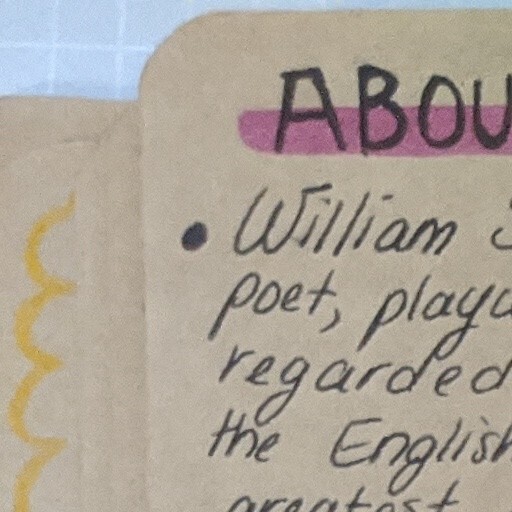 ABOU
• William S
poet, playw
regarded
the English
greatest